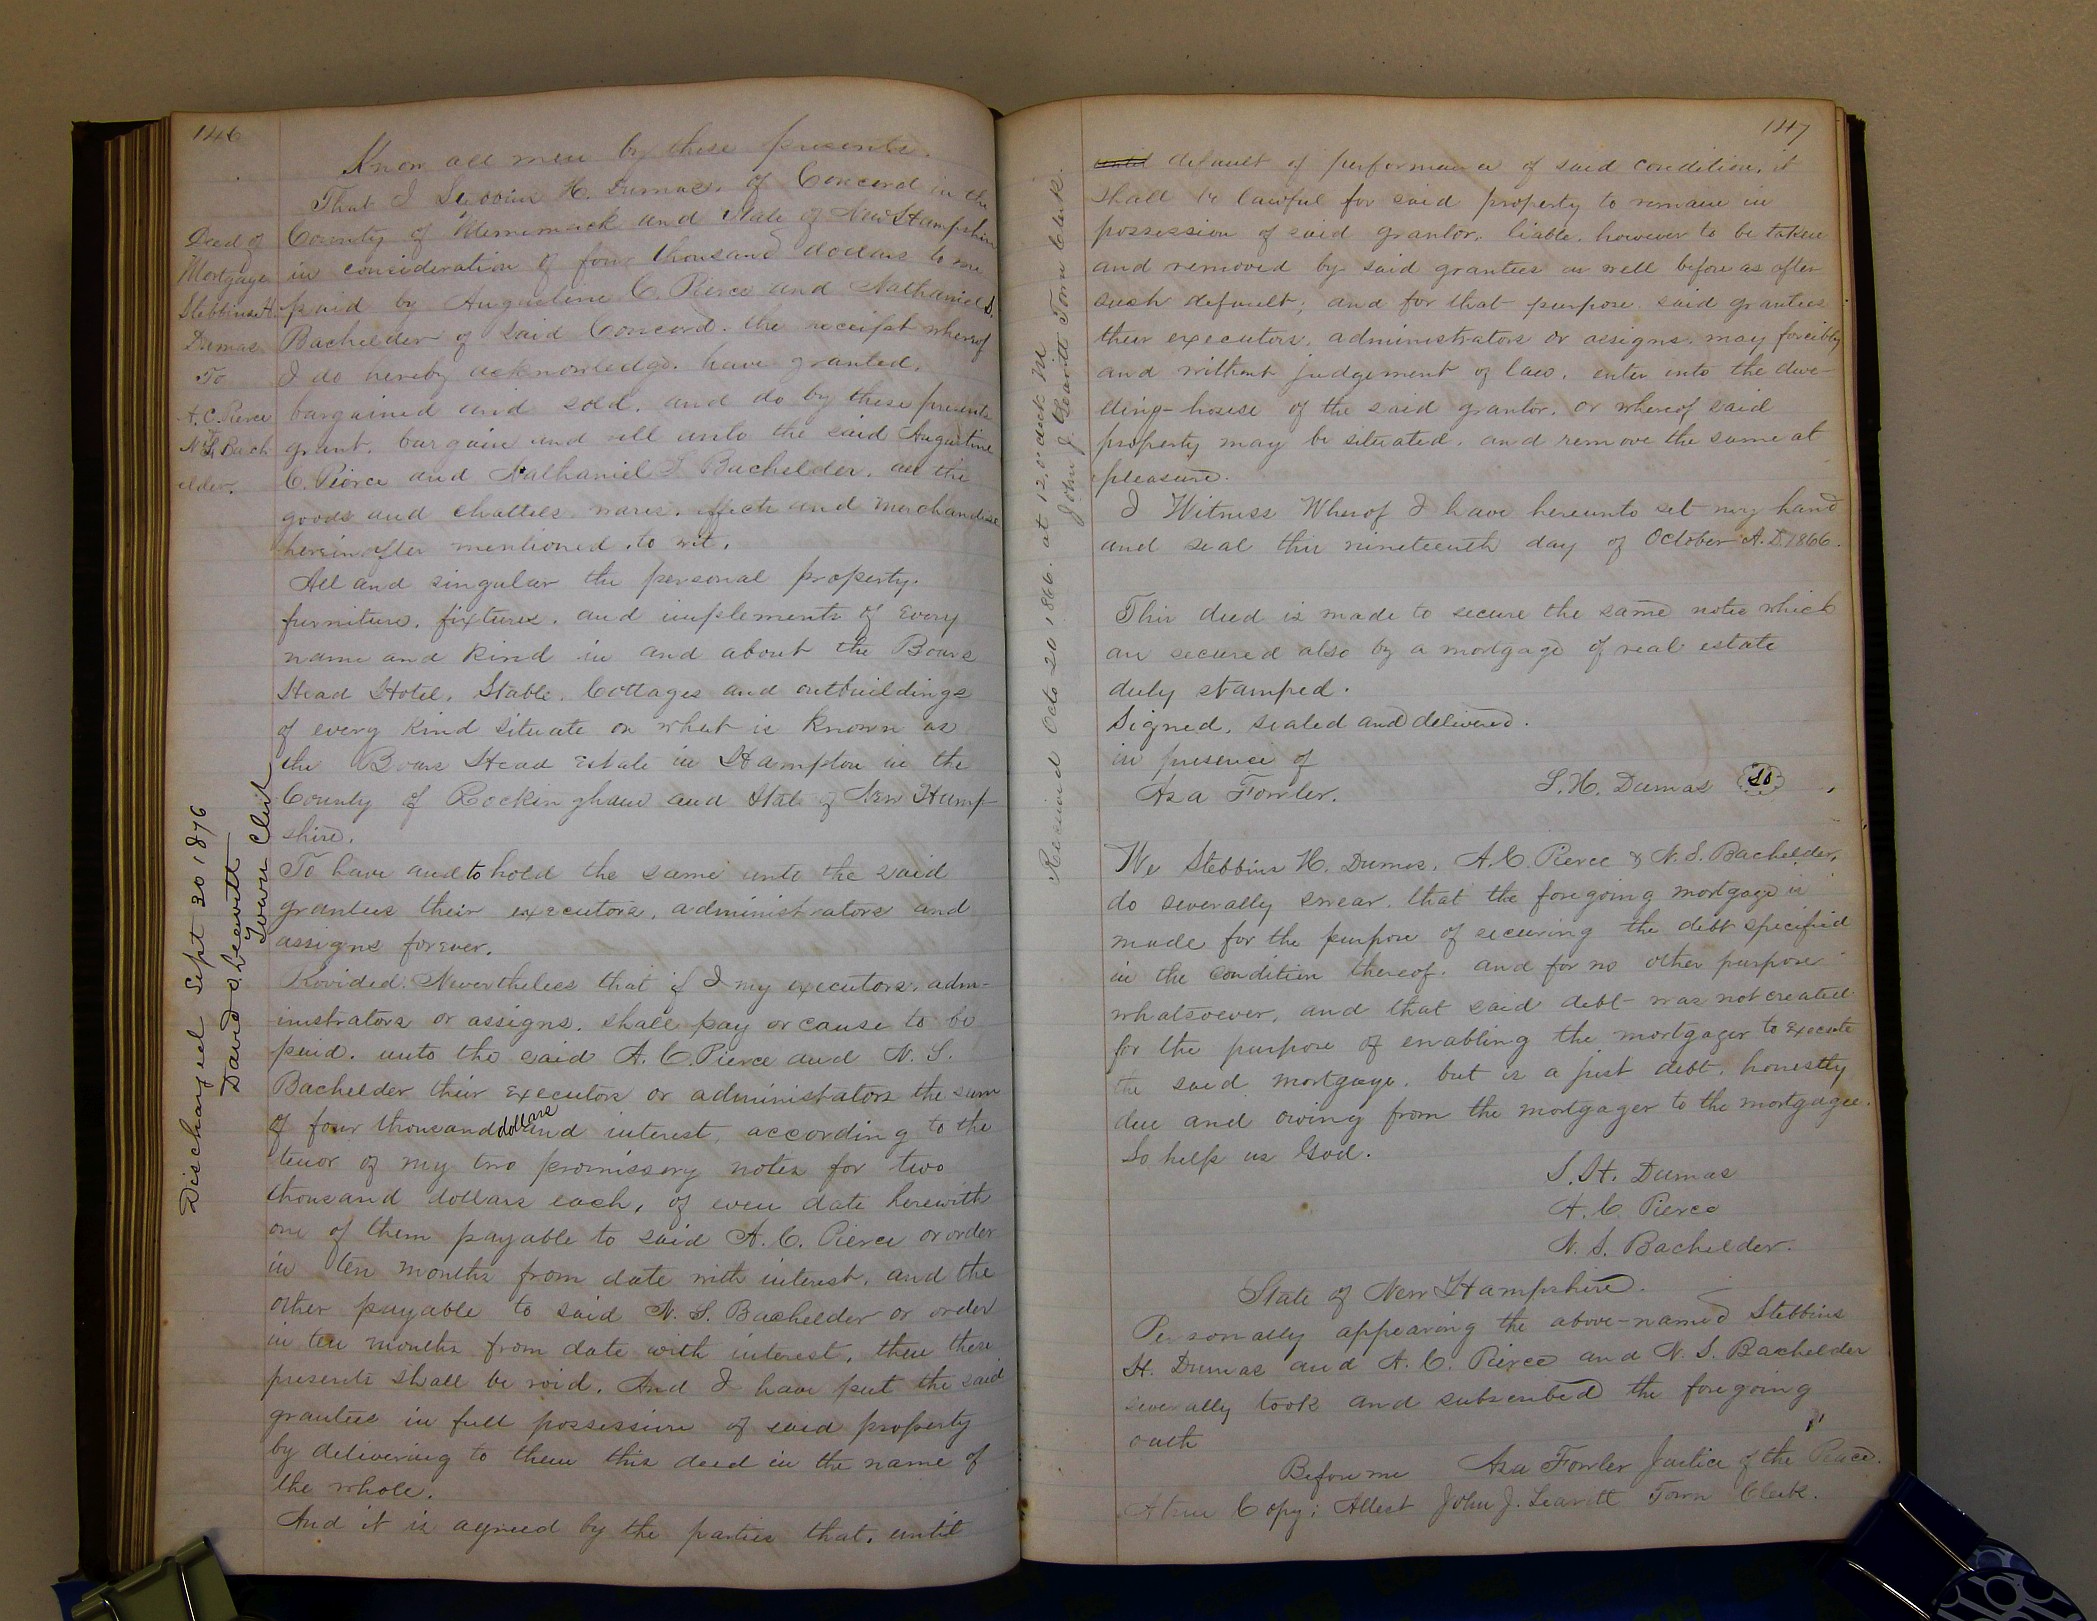 146
Know all men by these presents.
That I Stebbins H. Dumas, of Concord in the
County of Merrimack and State of New Hampshire
in consideration of four thousand dollars to me
paid by Augustine C. Pierce and Nathaniel S.
Bachelder of said Concord. the receipt whereof
I do hereby acknowledge. have granted.
bargained and sold. and do by these presents
grant. bargain and sell unto the said Augustine
C. Pierce and Nathaniel S. Bachelder. all the
goods and chattles. wares. effects and merchandise
hereinafter mentioned. to wit.
All and singular the personal property.
furniture. fixtures. and implements of every
name and kind in and about the Boars
Head Hotel. Stable. Cottages and outbuildings
of every kind situate on what is known as
the Boars Head Estate in Hampton in the
County of Rockingham and State of New Hamp-
shire.
To have and to hold the same unto the said
grantees their executors, administrators and
assigns forever.
Provided. Nevertheless that if I my executors. adm-
inistrators or assigns. shall pay or cause to be
paid. unto the said A. C. Pierce and N. S.
Bachelder their executors or administrators the sum
of four thousand dollars and interest, according to the
tenor of my two promissory notes for two
thousand dollars each, of even date herewith
one of them payable to said A. C. Pierce or order
in ten months from date with interest, and the
other payable to said N. S. Bachelder or order
in ten months from date with interest, then these
presents shall be void. And I have put the said
grantees in full possession of said property
by delivering to them this deed in the name of
the whole.
And it is agreed by the parties that. until
Deed of
Mortgage
Stebbins H.
Dumas
To
A. C. Pierce
N. S. Bach
elder.
Discharged Sept 30 1876
David S. Leavitt
Town Clerk
147
until default of performance of said condition. it
shall be lawful for said property to remain in
possession of said grantor. liable. however to be taken
and removed by said grantees as well before as after
such default; and for that purpose said grantees
their executors. administrators or assigns. may forcibly
and without judgement of law. enter into the dwe-
lling-house of the said grantor. or whereof said
property may be situated. and remove the same at
pleasure.
I Witness Wherof I have hereunto set my hand
and seal this nineteenth day of October A.D. 1866.
This deed is made to secure the same notes which
are secured also by a mortgage of real estate
duly stamped.
Signed, sealed and delivered.
in presence of
Asa Fowler.
S. H. Dumas
We Stebbins H. Dumas, A. C. Pierce & N. S. Bachelder,
do severally swear. that the foregoing mortgage is
made for the purpose of securing the debt specified
in the condition thereof. and for no other purpose
whatsoever, and that said debt was not created
for the purpose of enabling the mortgager to execute
the said mortgage. but is a just debt. honestly
due and owing from the mortgager to the mortgagee.
So help us God.
S. H. Dumas
A. C. Pierce
N. S. Bachelder.
State of New Hampshire.
Personally appearing the above-named Stebbins
H. Dumas and A. C. Pierce and N. S. Bachelder
severally took and subscribed the foregoing
oath
Before me Asa Fowler Justice of the Peace.
A true Copy; Attest John J. Leavitt Town Clerk.
Received Octo 20 1866. at 12. o'clock M
John J. Leavitt Town Clerk.